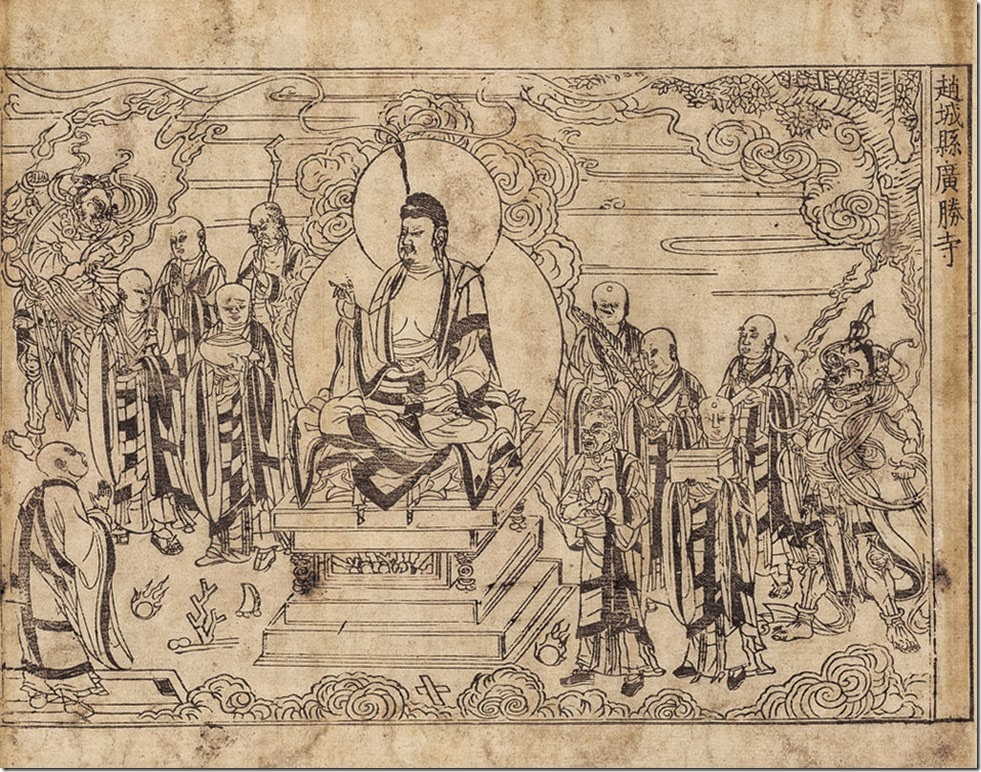 趙城縣廣勝寺